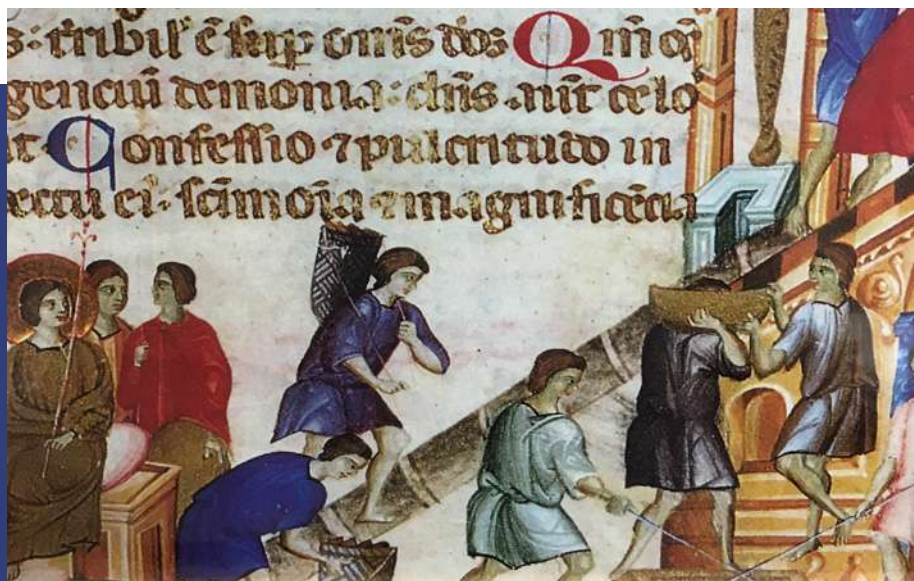 s: tribil' ē sup omīs dos Qm̄ os
genciū demonia: dn̄s aut̄ celo
it Confessio ⁊ pulcritudo in
ectu ei: sc̄imōia ⁊ magnificēcia